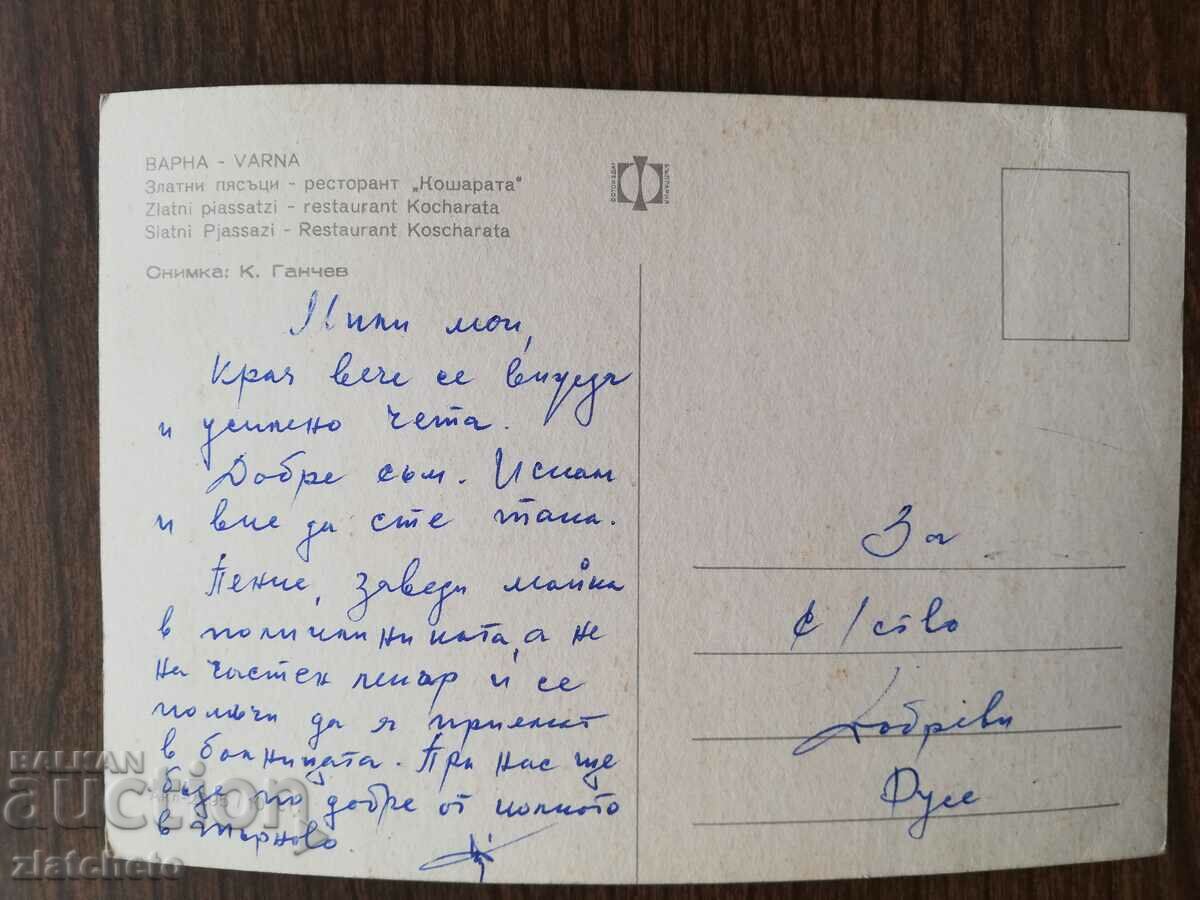 ВАРНА - VARNA
Златни пясъци - ресторант „Кошарата"
Zlatni piassatzi - restaurant Kocharata
Slatni Pjassazi - Restaurant Koscharata
Снимка: К. Ганчев
ФОТОИЗДАТ
БЪЛГАРИЯ
Мили мои,
Края вече се вижда
и усилено чета.
Добре съм. Искам
и вие да сте така.
Пенке, заведи майка
в поликлиниката, а не
на частен лекар и се
помъчи да я приемат
в болницата. При нас ще
бъде по добре от колкото
в Търново
За
с/ство
Добреви
Русе
BALKAN
auction
zlatcheto